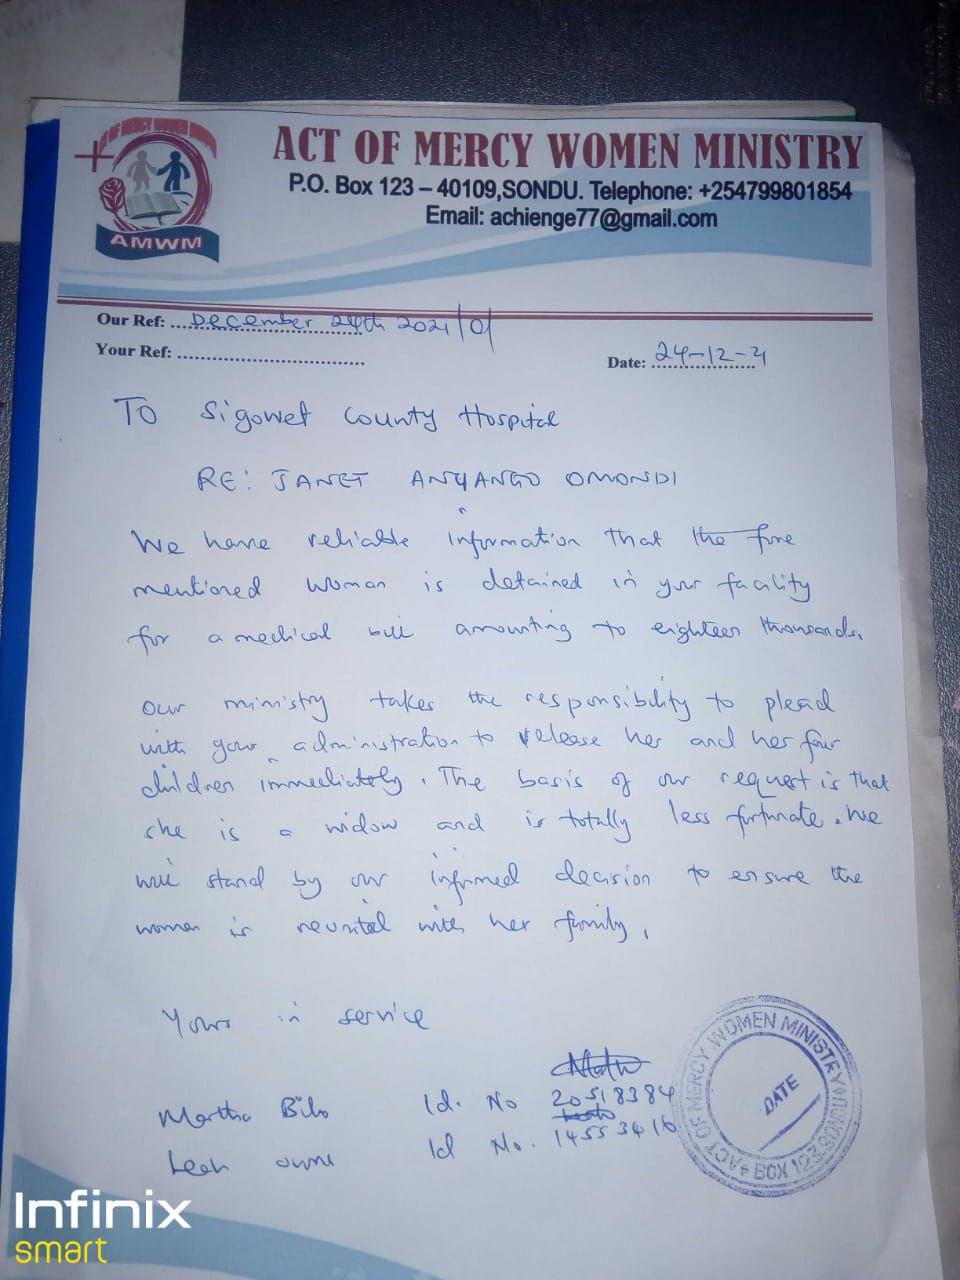 ACT OF MERCY WOMEN MINISTRY
P.O. Box 123 – 40109,SONDU. Telephone: +254799801854
Email: achienge77@gmail.com
AMWM
Our Ref: December 24th 2021/01
Your Ref:
Date: 24-12-21
TO Sigowet County Hospital
RE: JANET ANYANGO OMONDI
We have reliable information that the fore
mentioned woman is detained in your facility
for a medical bill amounting to eighteen thousands.
Our ministry takes the responsibility to plead
with your administration to release her and her four
children immediately. The basis of our request is that
she is a widow and is totally less fortunate. We
will stand by our informed decision to ensure the
woman is reunited with her family.
Yours in service
Martha Id. No 20518384
Leah Id No. 14553416
ACT OF MERCY WOMEN MINISTRY
DATE
BOX 123, SONDU
Infinix
smart